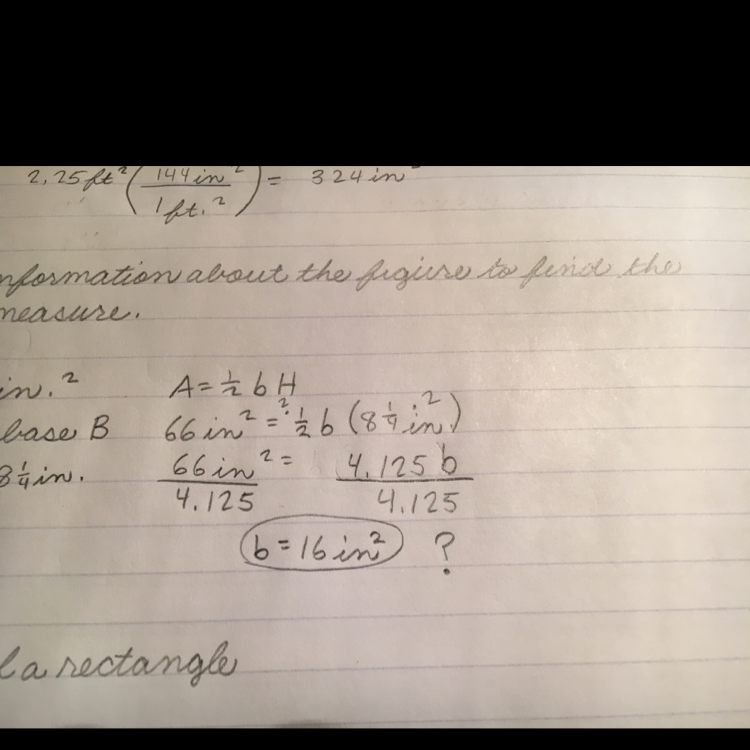 2.25ft²(144in²/1ft.²)= 324in²
nformation about the figure to find the
measure.
in.² A=½ b H
base B 66in²=²·½b (8¼in²)
8¼in. 66in²/4.125 = 4.125b/4.125
b=16in² ?
a rectangle